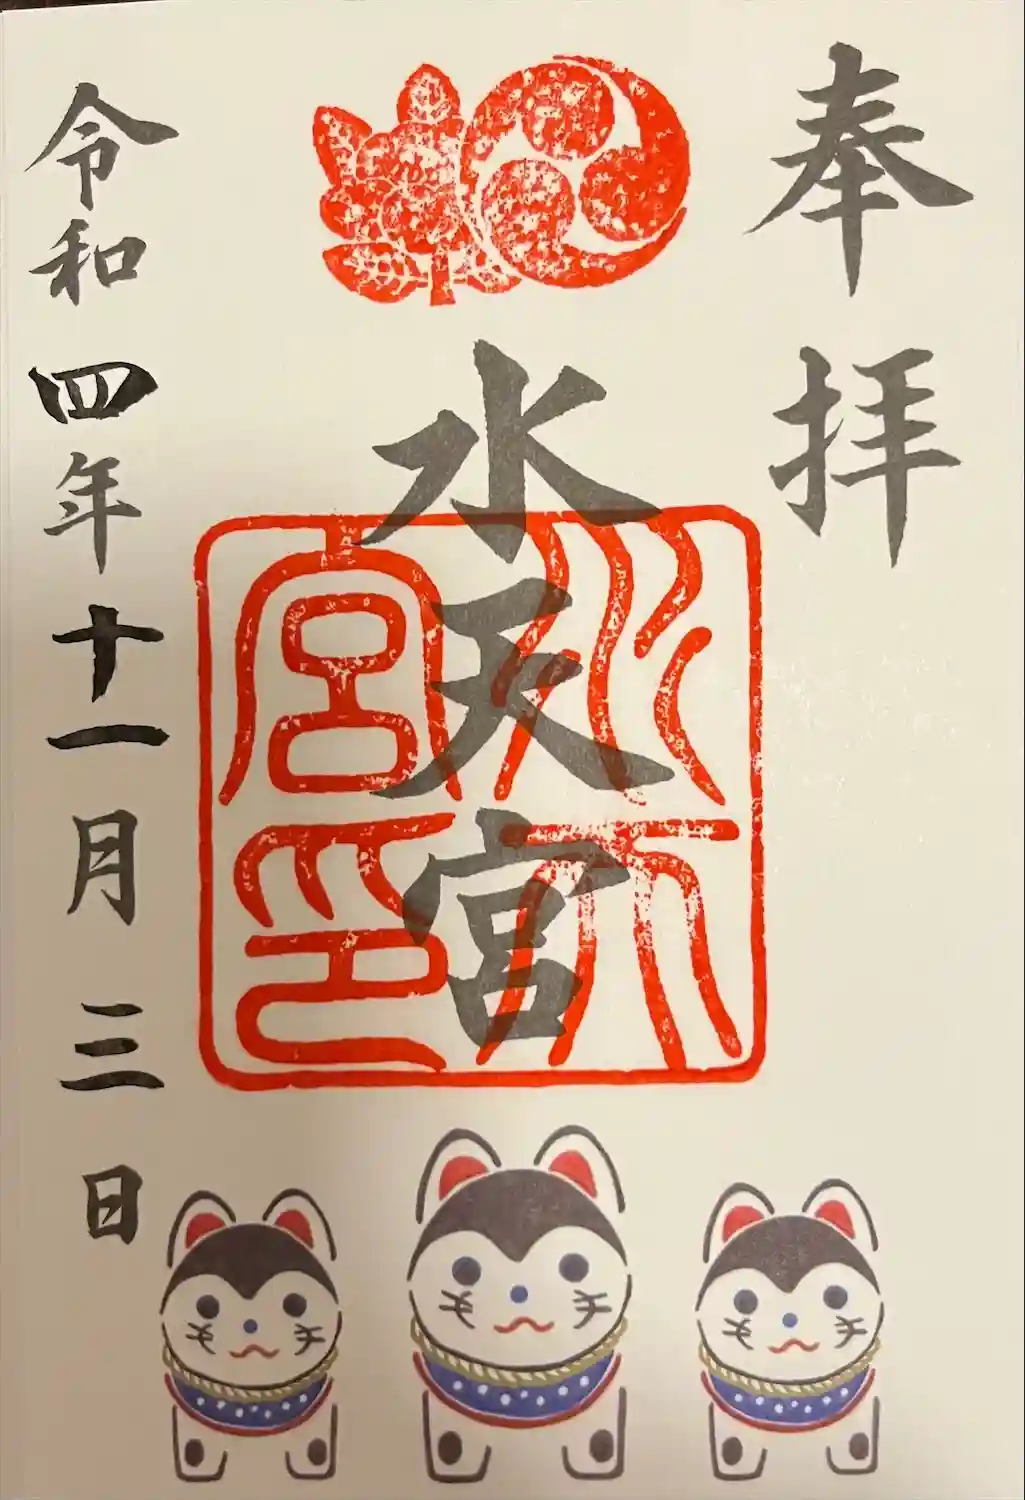 奉拝
水天宮
水天宮印
令和四年十一月三日